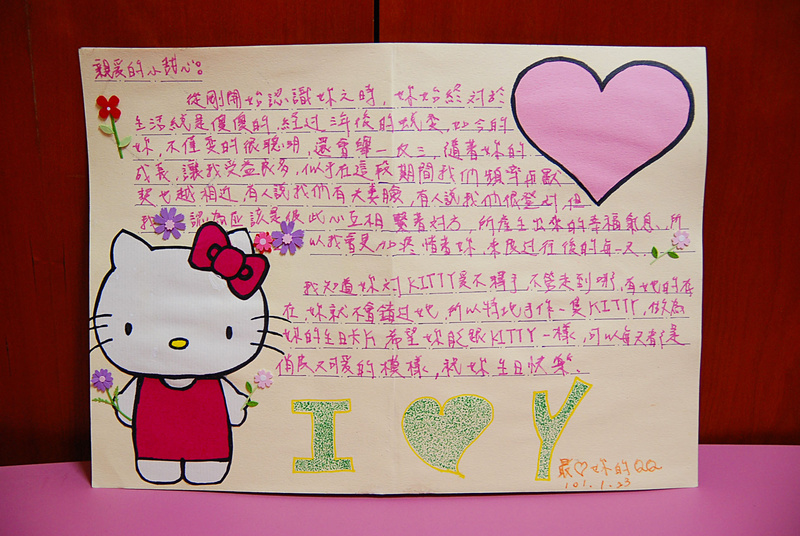 親愛的小甜心。
從剛開始認識妳之時，妳始終對於
生活總是傻傻的，經過三年後的蛻變，如今的
妳，不僅変的很聰明，還會舉一反三，隨著妳的
成長，讓我受益良多，似乎在這段期間我們頻率與默
契也越相近，有人說我們有夫妻臉，有人說我們很登對，但
我認為應該是彼此心互相繫著對方，所產生出來的幸福氣息，所
以我會更加疼惜著妳，來度过往後的每一天.
我知道妳对KITTY愛不釋手，不管走到哪，有她的存
在，妳就不會錯过她，所以特地手作一隻KITTY，做為
妳的生日卡片，希望妳能跟KITTY一樣，可以每天都是
俏皮又可愛的模樣，祝妳生日快樂.
I Y
最♡妳的QQ
101.1.23